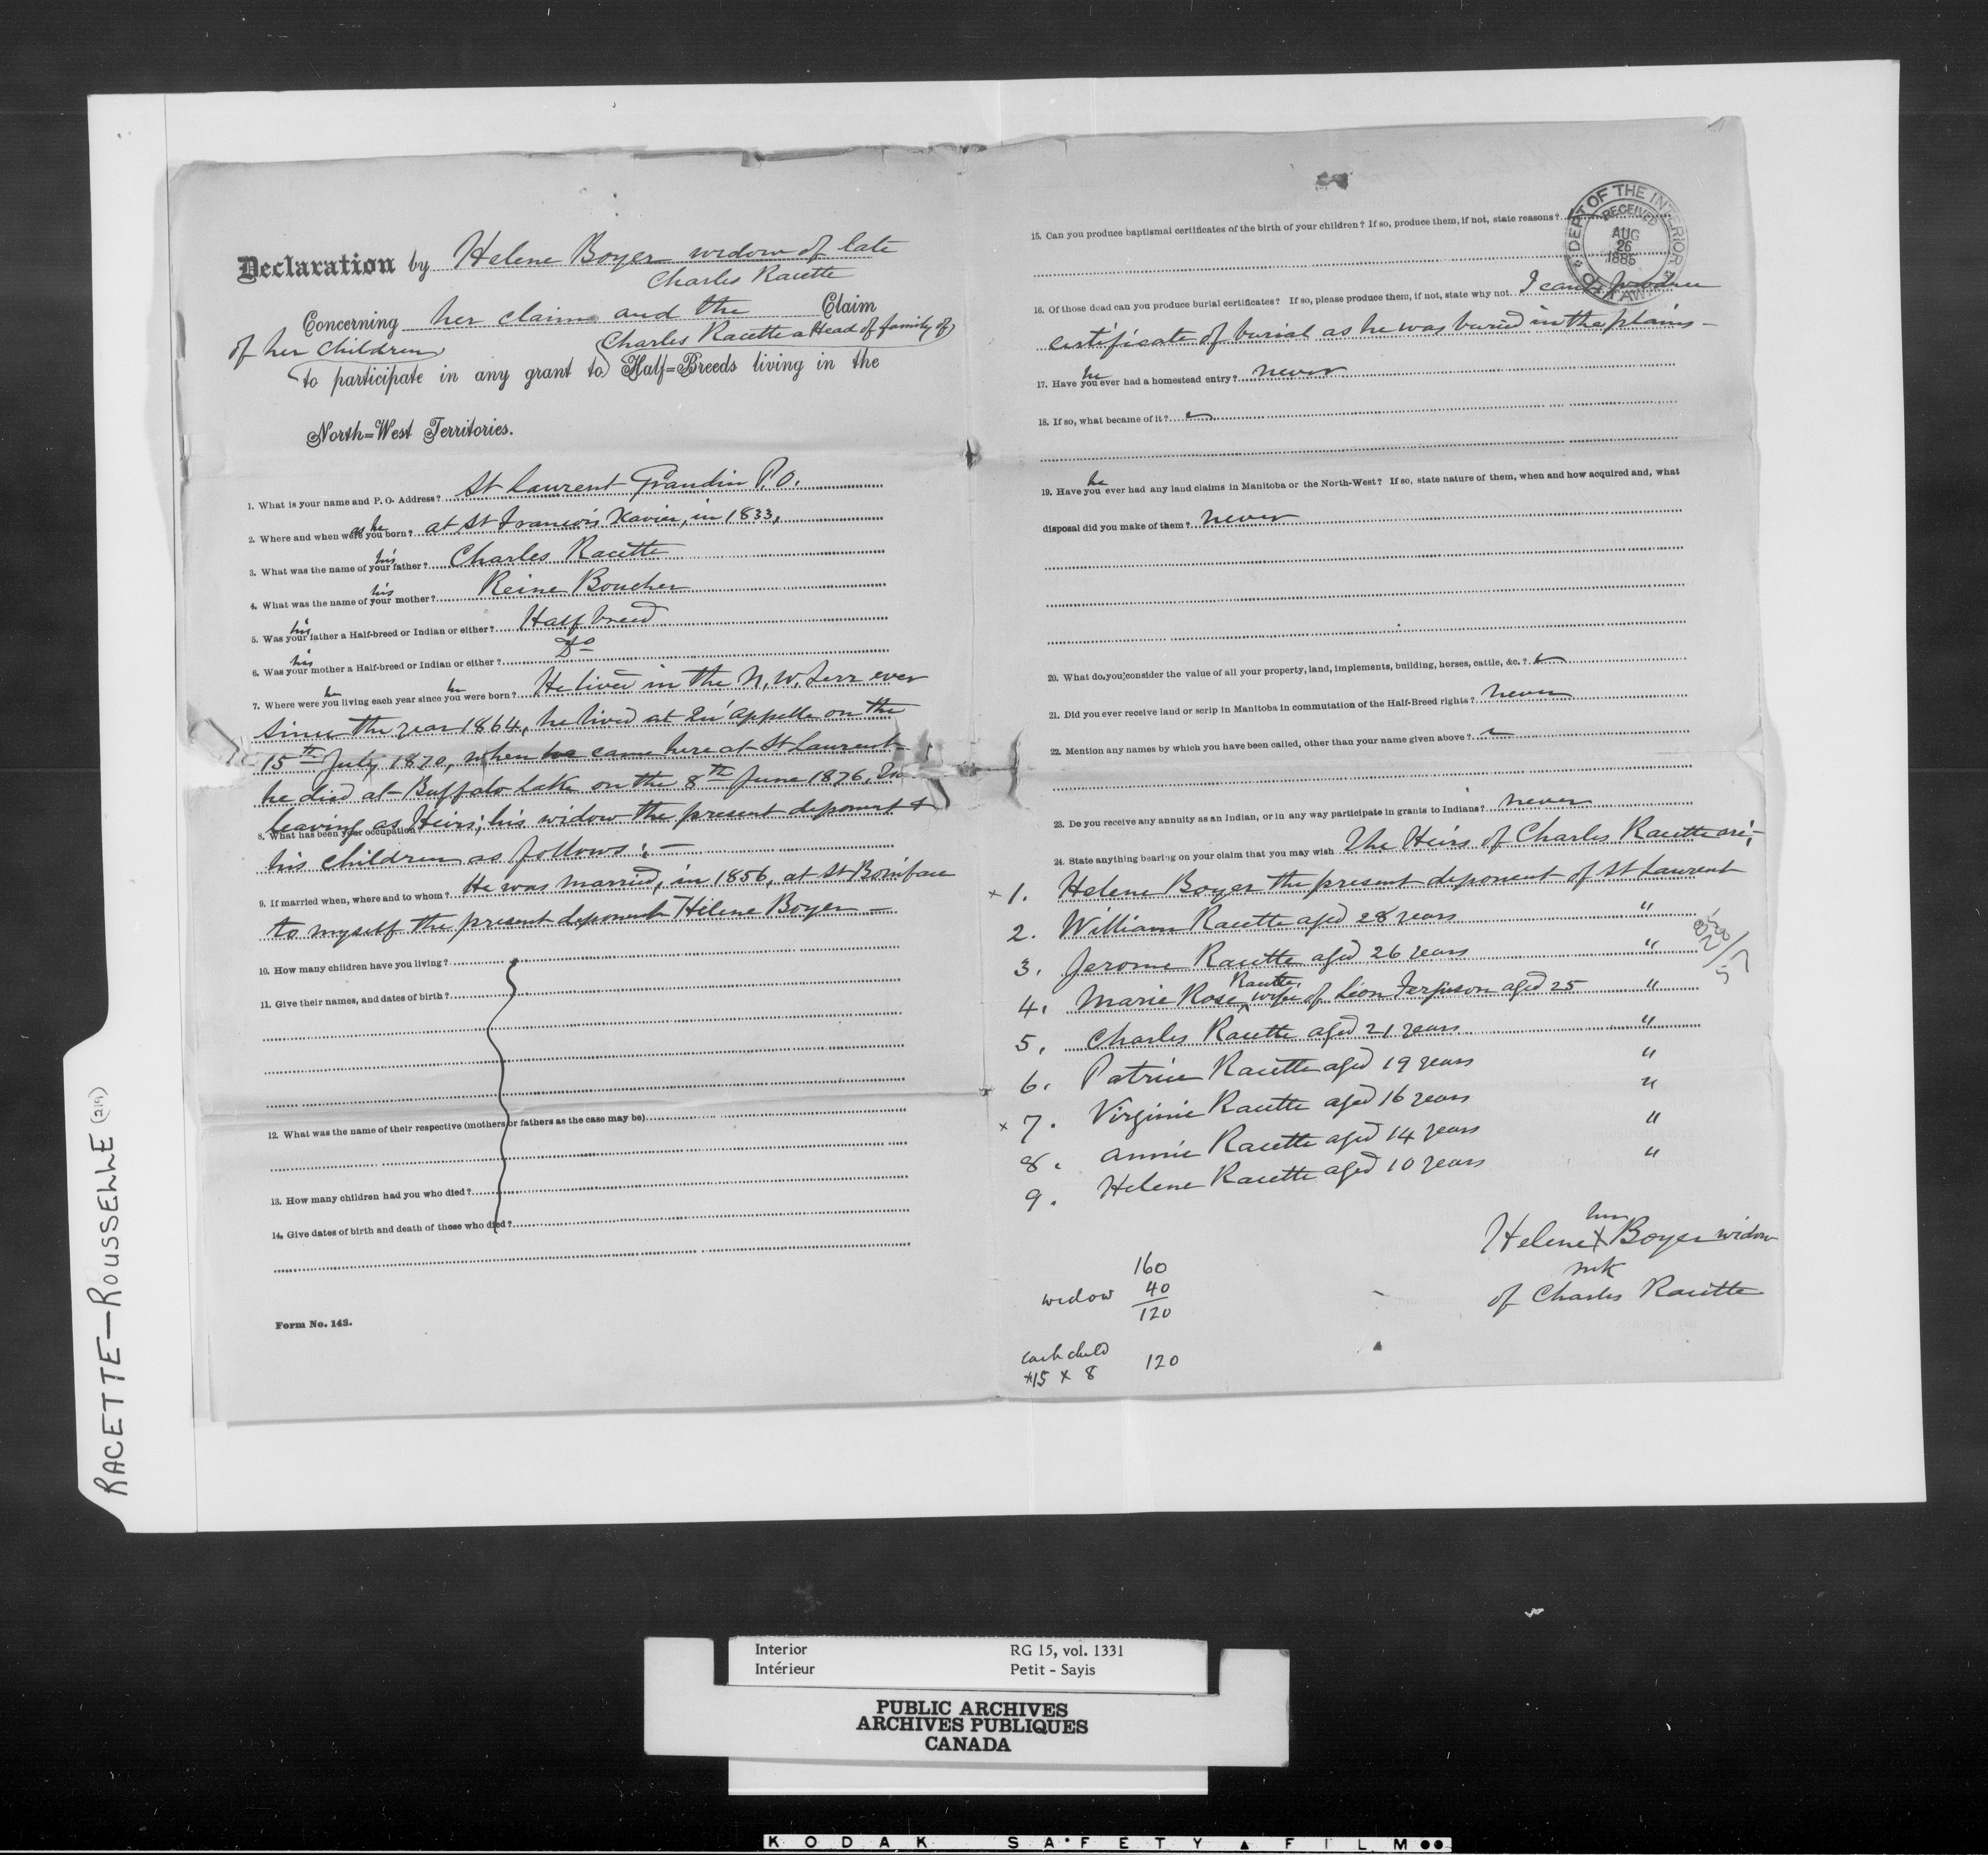 Declaration by Helene Boyer widow of late
Charles Racette
Concerning her claim and the Claim
of her children Charles Racette a Head of family of
to participate in any grant to Half-Breeds living in the
North-West Territories.
1. What is your name and P. O. Address? St Laurent Grandin P.O.
2. Where and when were you born? as he at St Francois Xavier, in 1833,
3. What was the name of your father? his Charles Racette
4. What was the name of your mother? his Reine Boucher
5. Was your father a Half-breed or Indian or either? his Half breed
6. Was your mother a Half-breed or Indian or either? his Do
7. Where were you living each year since you were born? he he He lived in the N. W. Terr ever
since the year 1864, he lived at Qu'appelle on the
15th July 1870, when he came here at St Laurent
he died at Buffalo Lake on the 8th June 1876,
leaving as Heirs; his widow the present deponent &
8. What has been your occupation
his children as follows: -
9. If married when, where and to whom? He was married, in 1856, at St Boniface
to myself the present deponent Hélene Boyer -
10. How many children have you living?
11. Give their names, and dates of birth?
12. What was the name of their respective (mothers or fathers as the case may be)
13. How many children had you who died?
14. Give dates of birth and death of those who died?
Form No. 143.
15. Can you produce baptismal certificates of the birth of your children? If so, produce them, if not, state reasons?
DEPT OF THE INTERIOR
RECEIVED
AUG
26
1885
OTTAWA
16. Of those dead can you produce burial certificates? If so, please produce them, if not, state why not. I can't produce
certificate of burial as he was buried in the plains -
17. Have you ever had a homestead entry? he never
18. If so, what became of it?
19. Have you ever had any land claims in Manitoba or the North-West? If so, state nature of them, when and how acquired and, what he
disposal did you make of them? never
20. What do you consider the value of all your property, land, implements, building, horses, cattle, &c.?
21. Did you ever receive land or scrip in Manitoba in commutation of the Half-Breed rights? never
22. Mention any names by which you have been called, other than your name given above?
23. Do you receive any annuity as an Indian, or in any way participate in grants to Indians? never
24. State anything bearing on your claim that you may wish The Heirs of Charles Racette are;-
x 1. Helene Boyer the present deponent of St Laurent
2. William Racette aged 28 years "
3. Jerome Racette aged 26 years "
4. Marie Rose Racette, wife of Léon Ferguson aged 25 "
5. Charles Racette aged 21 years "
6. Patrice Racette aged 19 years "
x 7. Virginie Racette aged 16 years "
8. Annie Racette aged 14 years "
9. Helene Racette aged 10 years "
her
Helene X Boyer widow
mk
of Charles Racette
160
widow 40
120
each child
15 x 8 120
RACETTE-ROUSSELLE (219)
Interior RG 15, vol. 1331
Intérieur Petit - Sayis
PUBLIC ARCHIVES
ARCHIVES PUBLIQUES
CANADA
KODAK SAFETY FILM